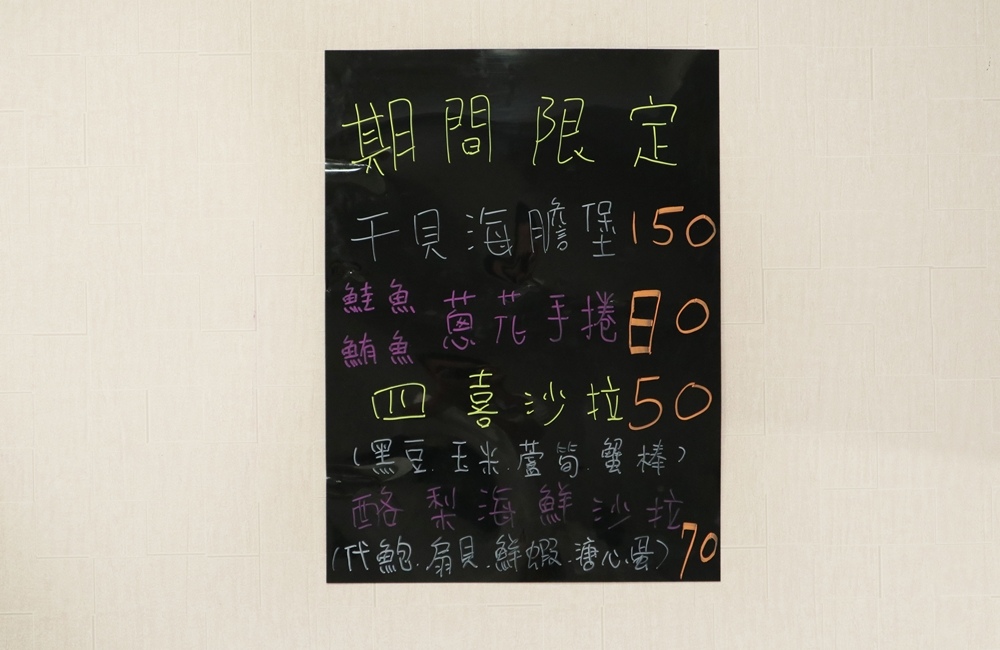 期間限定
干貝海膽堡150
鮭魚
鮪魚 蔥花手捲80
四喜沙拉50
(黑豆.玉米.蘆筍.蟹棒)
酪梨海鮮沙拉
(代鮑.扇貝.鮮蝦.溏心蛋) 70